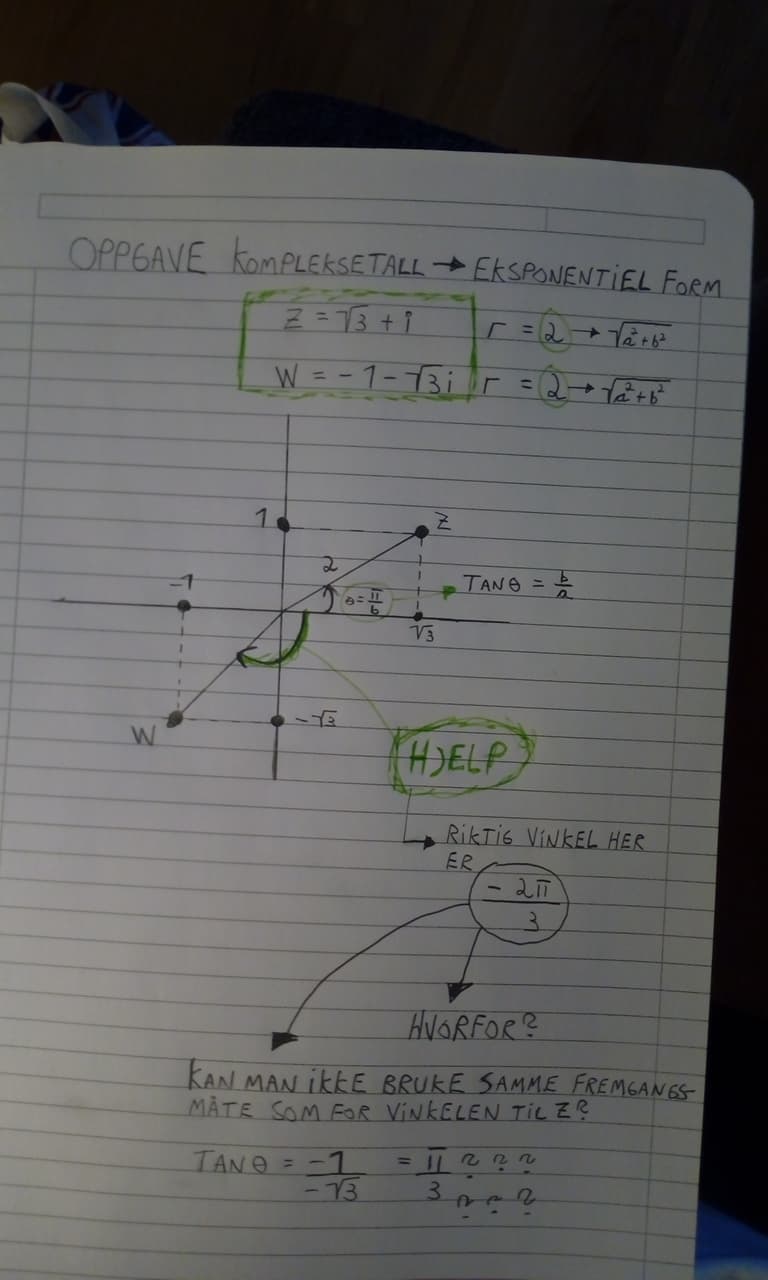 OPPGAVE KOMPLEKSETALL → EKSPONENTIEL FORM
Z = √3 + i r = 2 → √a²+b²
W = -1 - √3i r = 2 → √a²+b²
1
Z
2
-1
θ = π/6
TANθ = b/a
√3
W
-√3
HJELP
RIKTIG VINKEL HER
ER
-2π/3
HVORFOR?
KAN MAN IKKE BRUKE SAMME FREMGANGS-
MÅTE SOM FOR VINKELEN TIL Z?
TANθ = -1/-√3 = π/3 ? ? ? ? ? ?